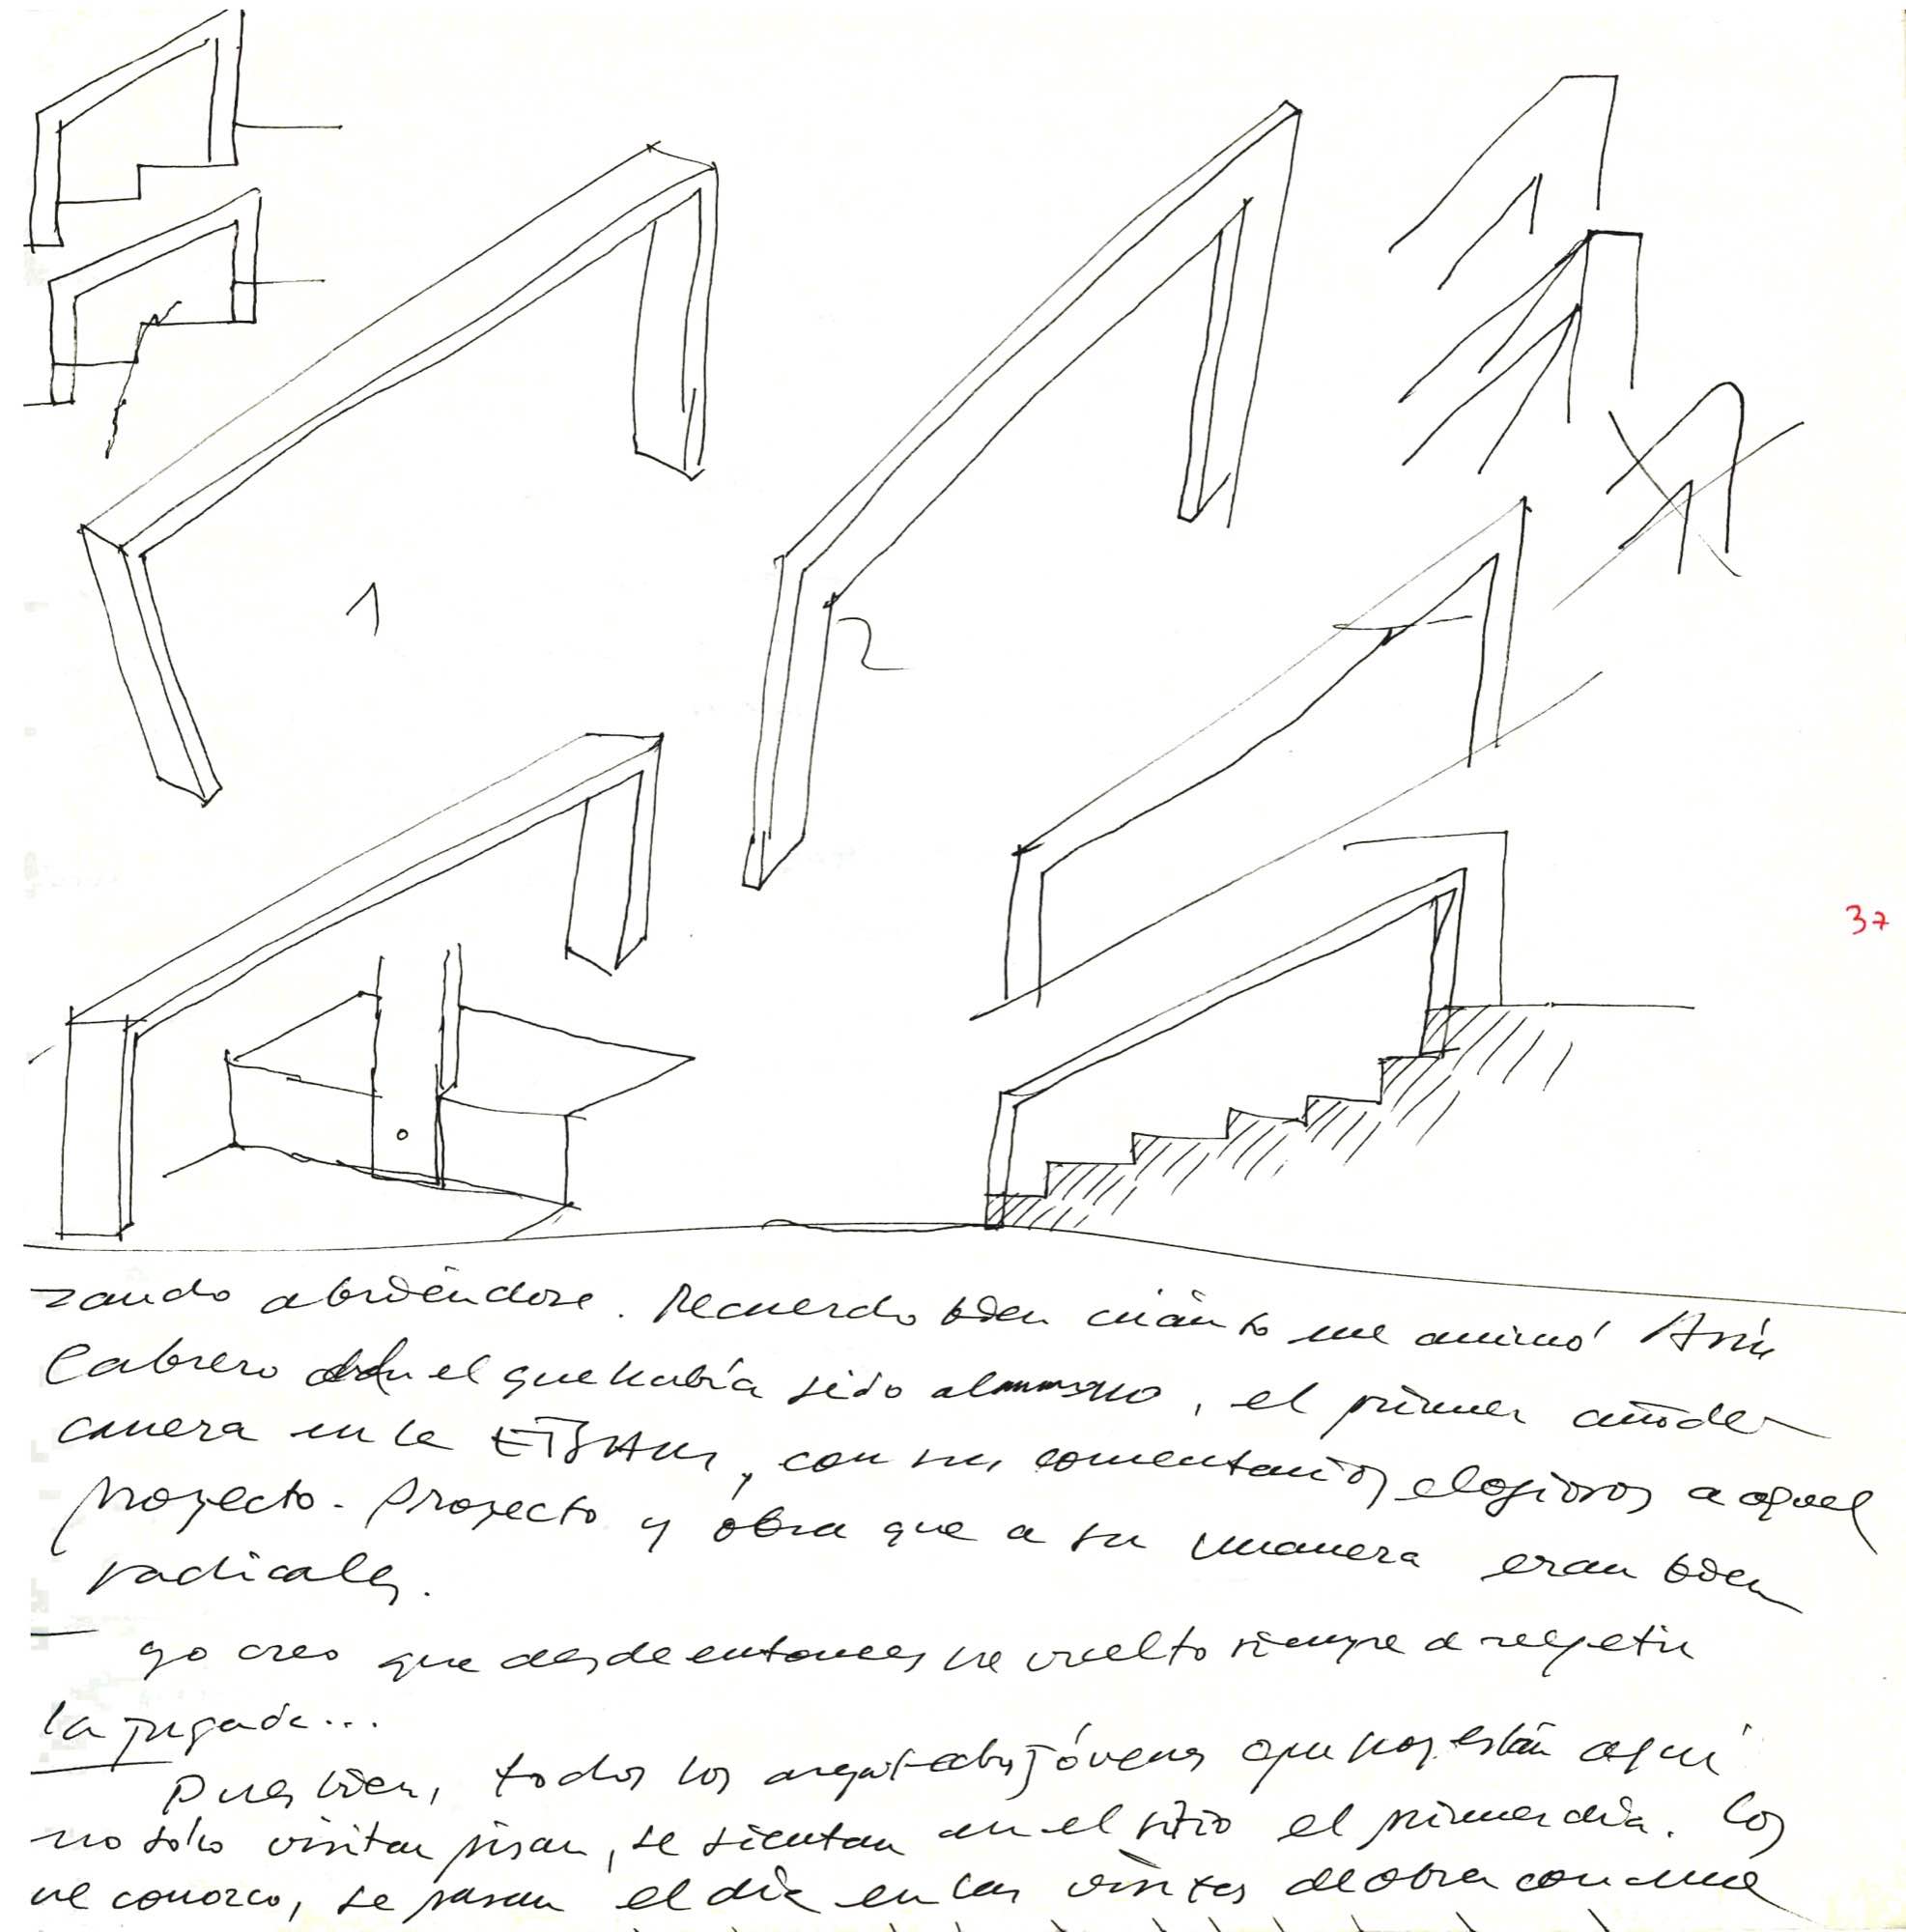 1
2
37
zando abriéndose. Recuerdo bien cuánto me animó
Cabrero el que había sido alumno, el primer año de
carrera en la ETSAM, con sus comentarios elogiosos a aquel
proyecto. Proyecto y obra que a su manera eran bien
radicales.
yo creo que desde entonces he vuelto siempre a repetir
la jugada...
Pues bien, todos los arquitectos jóvenes que hoy están aquí
no sólo visitan pisan, se sientan en el sitio el primer día. los
he conozco, se pasan el día en las visitas de obra con